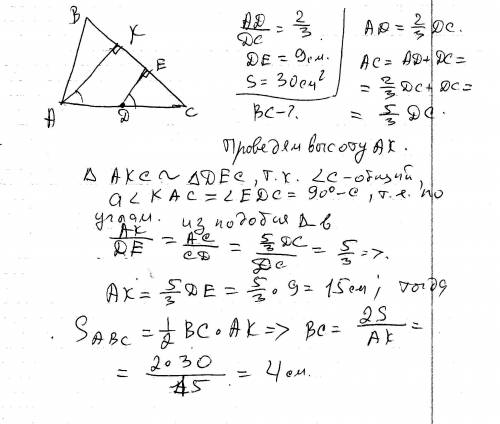 B
K
E
A
D
C
AD/DC = 2/3
DE = 9 см.
S = 30 см²
BC - ?
AD = 2/3 DC.
AC = AD + DC =
= 2/3 DC + DC =
= 5/3 DC.
Проведём высоту AK.
Δ AKC ~ Δ DEC, т.к. ∠C - общий,
а ∠KAC = ∠EDC = 90° - C, т.е. по
углам. из подобия Δ в
AK/DE = AC/CD = 5/3 DC/DC = 5/3 =>.
AK = 5/3 DE = 5/3 · 9 = 15 см; тогда
S ABC = 1/2 BC · AK => BC = 2S/AK =
= 2·30/15 = 4 см.